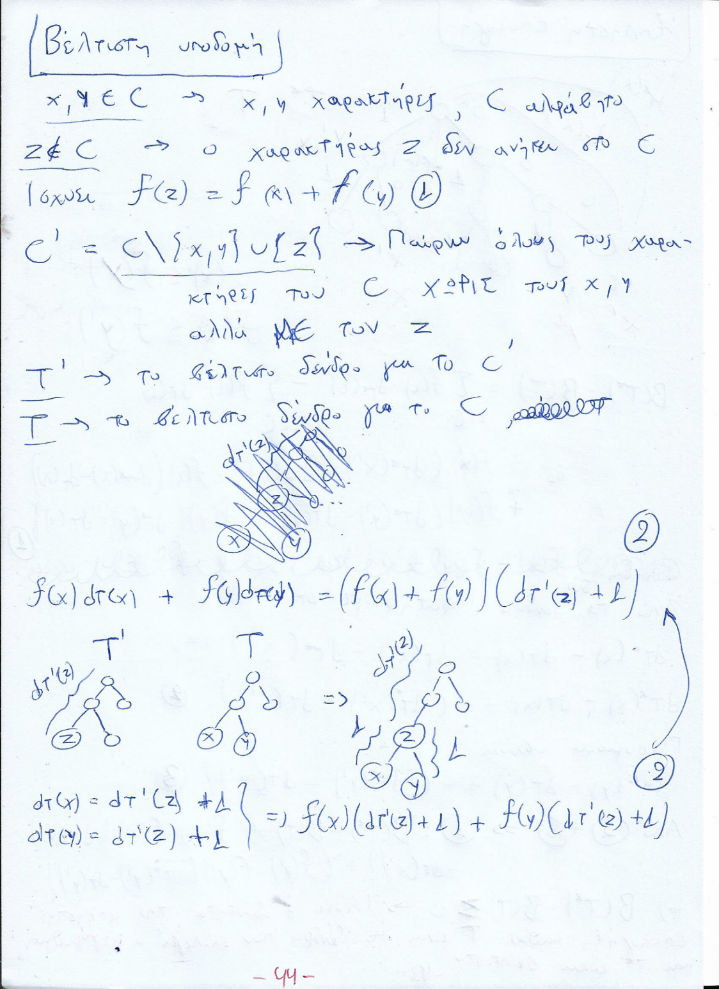 Βέλτιστη υποδομή
x, y ∈ C → x, y χαρακτήρες, C αλφάβητο
z ∉ C → ο χαρακτήρας z δεν ανήκει στο C
Ισχύει f(z) = f(x) + f(y) ①
C' = C\{x,y}∪{z} → Παίρνω όλους τους χαρα-
κτήρες του C ΧΩΡΙΣ τους x, y
αλλά ΜΕ τον z
T' → το βέλτιστο δένδρο για το C'
T → το βέλτιστο δένδρο για το C,
dT'(z)
z
x y
②
f(x)dT(x) + f(y)dT(y) = (f(x) + f(y))(dT'(z) + 1)
T' T dT'(z)
dT'(z) ⇒
z x y 1 z 1
x y ②
dT(x) = dT'(z) + 1
dT(y) = dT'(z) + 1 } ⇒ f(x)(dT'(z)+1) + f(y)(dT'(z)+1)
- 44 -